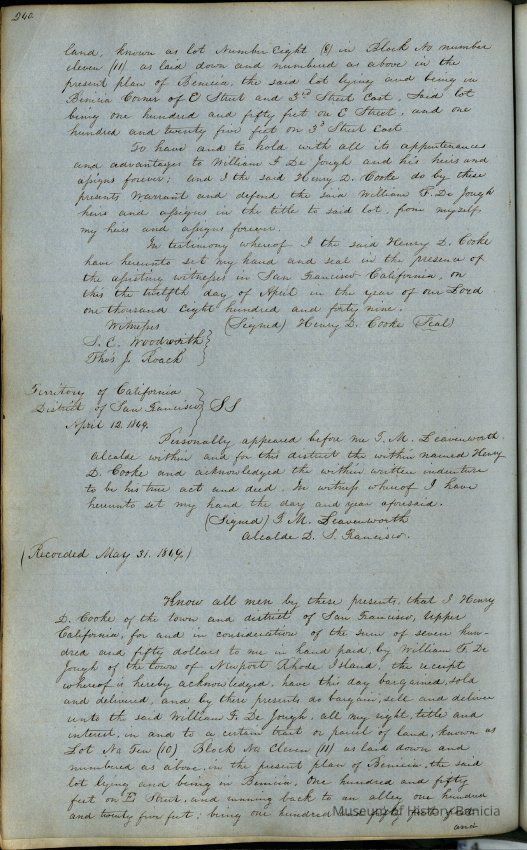 240
land, known as lot Number Eight (8) in Block No number
eleven (11) as laid down and numbered as above in the
present plan of Benicia, the said lot lying and being in
Benicia Corner of E Street and 3rd Street East, Said lot
being one hundred and fifty feet on E Street, and one
hundred and twenty five feet on 3d Street East
To have and to hold with all its appurtenances
and advantages to William F De Jough and his heirs and
assigns forever; and I the said Henry D. Cooke do by these
presents Warrant and defend the said William F. De Jough
heirs and assigns in the title to said lot, from myself,
my heirs and assigns forever.
In testimony whereof I the said Henry D. Cooke
have hereunto set my hand and seal in the presence of
the assisting witnesses in San Francisco California, on
this the twelfth day of April in the year of our Lord
one thousand Eight hundred and forty nine.
Witness (Signed) Henry D. Cooke (Seal)
S. C. Woodworth
Thos J. Roach
Territory of California
District of San Francisco SS
April 12. 1849.
Personally appeared before me T. M. Leavenworth
Alcalde within and for this district the within named Henry
D. Cooke and acknowledged the within written indenture
to be his true act and deed. In witness whereof I have
hereunto set my hand the day and year aforesaid.
(Signed) T M. Leavenworth
Alcalde D. S. Francisco.
(Recorded May 31. 1849.)
Know all men by these presents, that I Henry
D. Cooke of the town and district of San Francisco, Upper
California, for and in consideration of the sum of seven hun-
dred and fifty dollars to me in hand paid, by William F. De
Jough of the town of Newport Rhode Island, the receipt
whereof is hereby acknowledged, have this day bargained, sold
and delivered, and by these presents do bargain, sell and deliver
unto the said William F. De Jough, all my right, title and
interest, in and to a certain tract or parcel of land, known as
Lot No Ten (10) Block No Eleven (11) as laid down and
numbered as above, in the present plan of Benicia, the said
lot lying and being in Benicia, One hundred and fifty
feet on E Street, and running back to an alley one hundred
and twenty five feet; being one hundred and fifty feet front
and
Museum of History Benicia